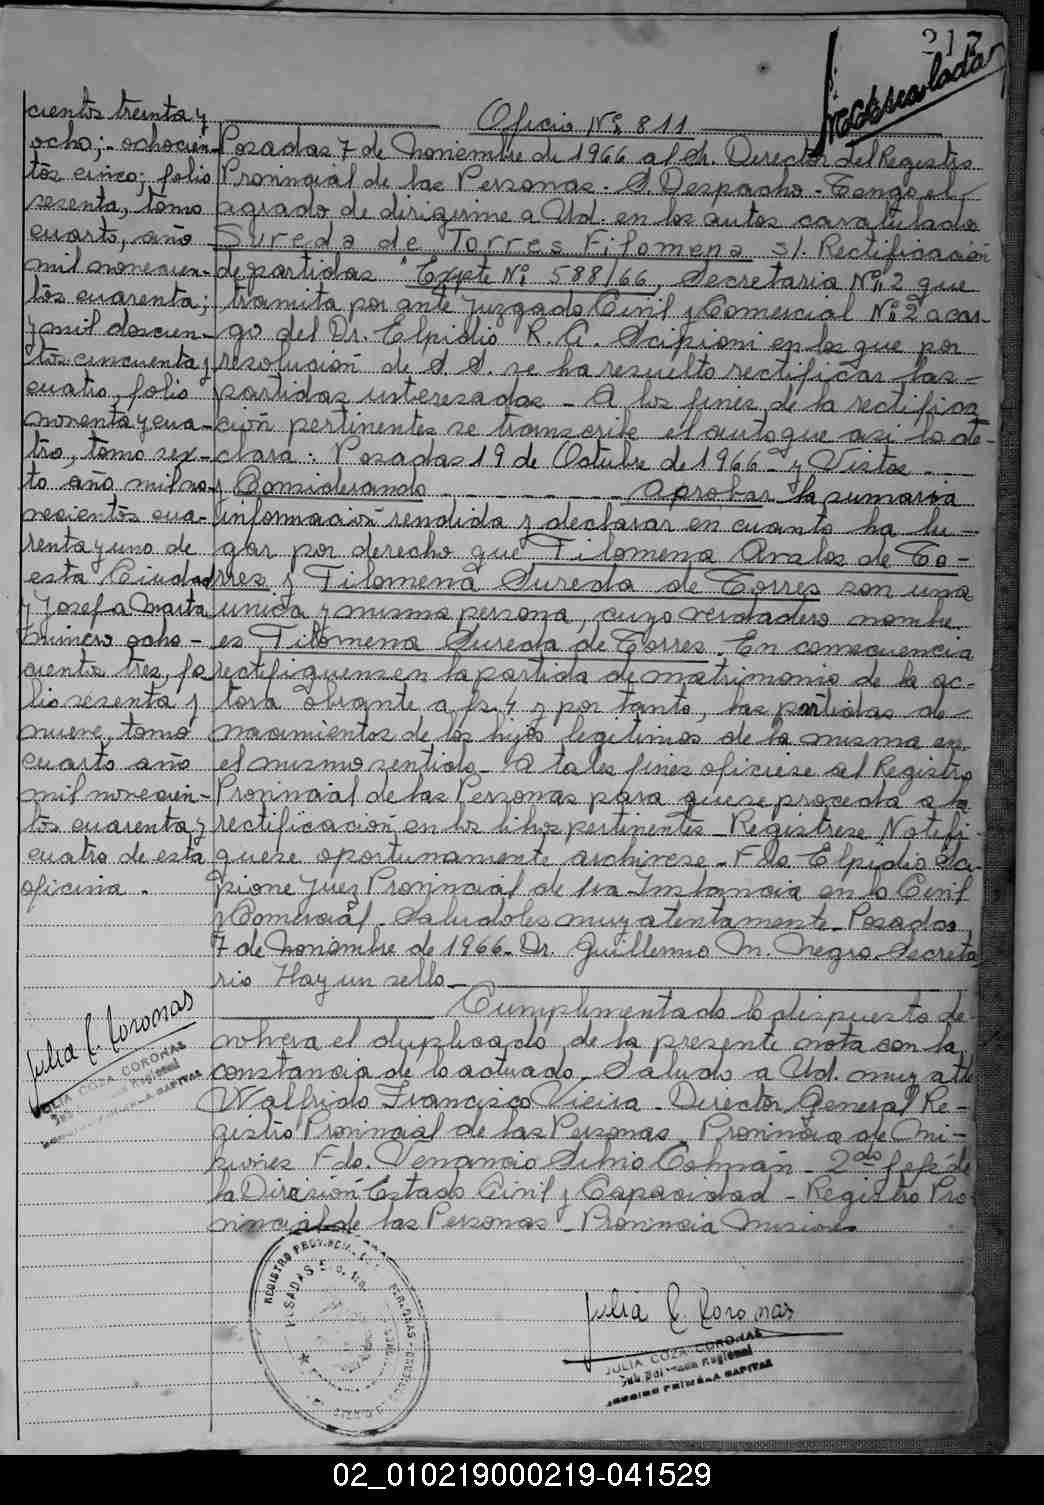 217
cientos treinta y
ocho; ochocien-
tos cinco; folio
sesenta, tomo
cuarto, año
mil novecien-
tos cuarenta;
y mil doscien-
tos cincuenta y
cuatro, folio
noventa y cua-
tro, tomo sex-
to año mil no-
vecientos cua-
renta y uno de
esta Ciudad
y Josefa Marta
número ocho-
cientos tres, fo
lio sesenta y
nueve, tomo
cuarto año
mil novecien-
tos cuarenta y
cuatro de esta
oficina.
Julia C. Coronas
JULIA COZA CORONAS
Oficio Nº 811
Posadas 7 de Noviembre de 1966 al Sr. Director del Registro
Provincial de las Personas. S. Despacho - Tengo el
agrado de dirigirme a Ud. en los autos caratulado
Sureda de Torres Filomena s/. Rectificación
de partidas " Expte Nº 588/66, Secretaria Nº 2 que
tramita por ante Juzgado Civil y Comercial Nº 2 a car-
go del Dr. Elpidio R. A. Scipioni en los que por
resolución de S. S. se ha resuelto rectificar las
partidas interesadas - A los fines de la rectifica
ción pertinentes se transcribe el auto que asi lo de-
clara: Posadas 19 de Octubre de 1966 - y Vistos
y Considerando - - - - - - Aprobar la sumaria
información rendida y declarar en cuanto ha lu-
gar por derecho que Filomena Avalos de To-
rres y Filomena Sureda de Torres son una
unica y misma persona, cuyo verdadero nombre
es Filomena Sureda de Torres. En consecuencia
rectifiquense en la partida de matrimonio de la ac-
tora obrante a fs. 4 y por tanto, las partidas de
nacimientos de los hijos legitimos de la misma en
el mismo sentido - A tales fines oficiese al Registro
Provincial de las Personas para que se proceda a la
rectificación en los libros pertinentes - Registrese Notifi-
quese oportunamente archivese - Fdo. Elpidio Sci-
pione Juez Provincial de 1ra. Instancia en lo Civil
y Comercial. Saludoles muy atentamente - Posadas,
7 de Noviembre de 1966 - Dr. Guillermo M. Negro Secreta
rio Hay un sello -
Cumplimentado lo dispuesto de-
volvera el duplicado de la presente nota con la
constancia de lo actuado - Saludo a Ud. muy atte
Walfrido Francisco Vieira - Director General Re-
gistro Provincial de las Personas Provincia de Mi-
siones Fdo. Venancio Silvio Colmán - 2do Jefe de
la División Estado Civil y Capacidad - Registro Pro
vincial de las Personas - Provincia Misiones
Julia C. Coronas
JULIA COZA CORONAS
02_010219000219-041529